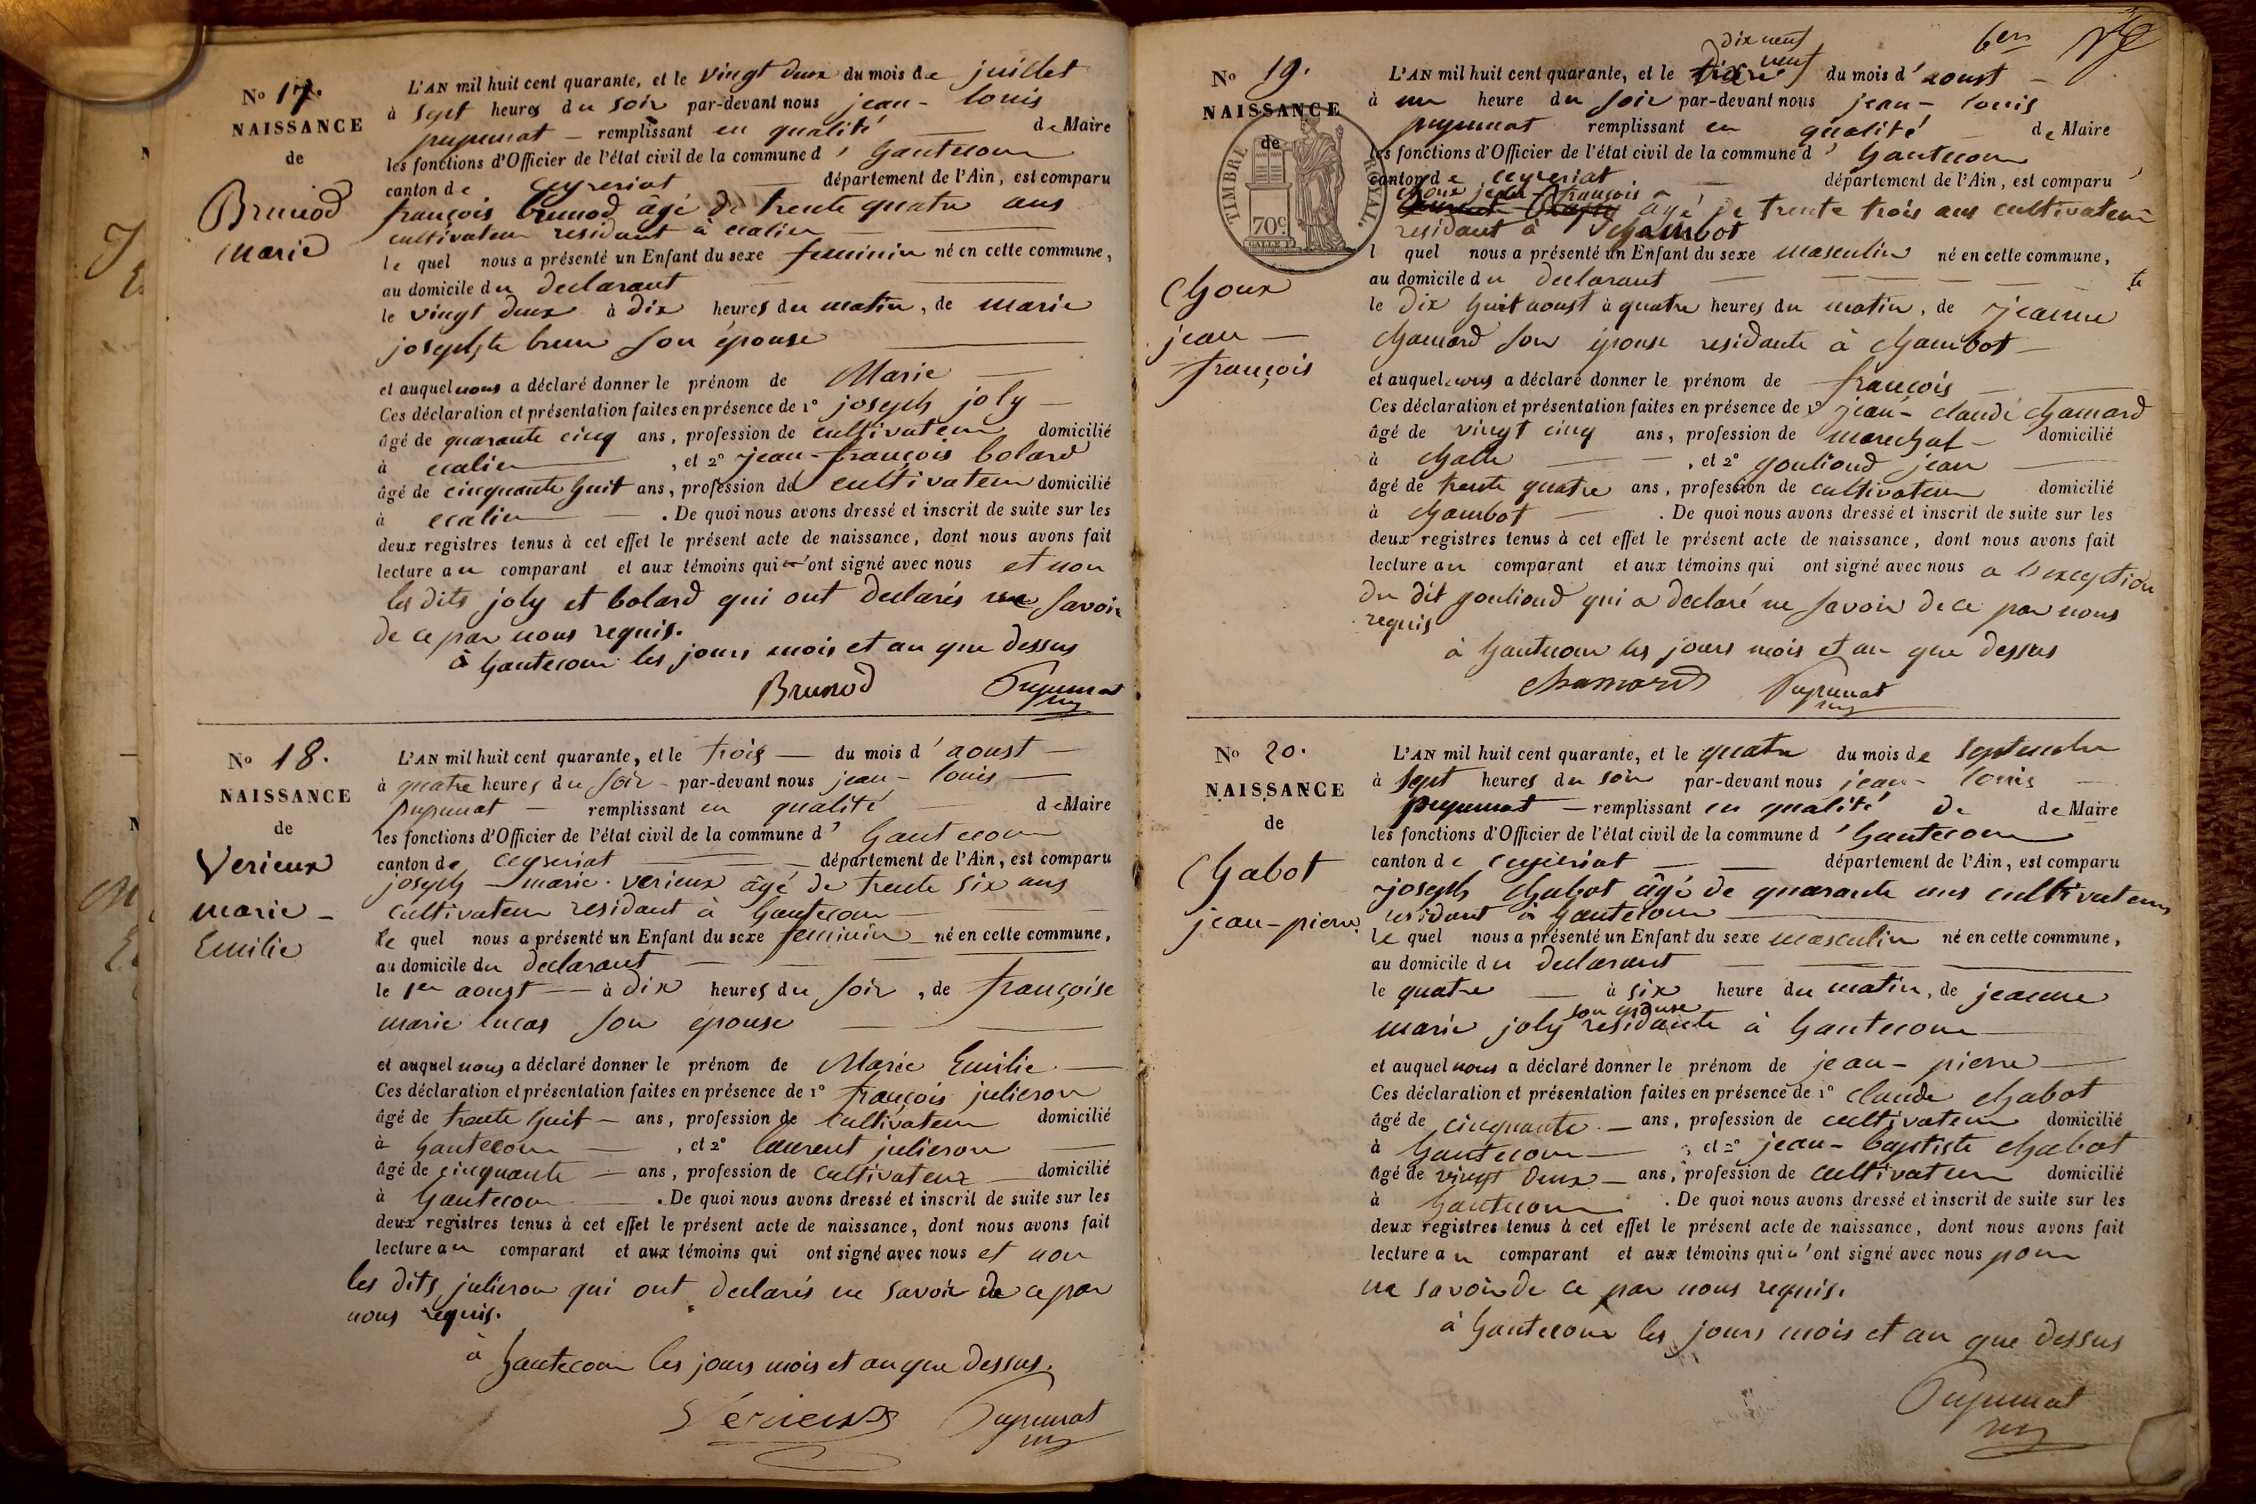 N° 17.
NAISSANCE
de
Brunod
marie
L'AN mil huit cent quarante, et le vingt deux du mois de juillet
à sept heures du soir par-devant nous jean - louis
pupunat — remplissant en qualité — de Maire
les fonctions d'Officier de l'état civil de la commune d' hautecour
canton de ceyseriat — département de l'Ain, est comparu
françois brunod âgé de trente quatre ans
cultivateur residant à
le quel nous a présenté un Enfant du sexe feminin né en cette commune,
au domicile du declarant
le vingt deux à dix heures du matin, de marie
josephte brun son épouse
et auquel nous a déclaré donner le prénom de Marie
Ces déclaration et présentation faites en présence de 1° joseph joly —
âgé de quarante cinq ans, profession de cultivateur domicilié
à , et 2° jean-françois bolard
âgé de cinquante huit ans, profession de cultivateur domicilié
à . De quoi nous avons dressé et inscrit de suite sur les
deux registres tenus à cet effet le présent acte de naissance, dont nous avons fait
lecture au comparant et aux témoins qui ont signé avec nous et non
les dits joly et bolard qui ont declarés ne savoir
de ce par nous requis.
à hautecour les jours mois et an que dessus
Brunod Pupunat
N° 18.
NAISSANCE
de
Verieux
marie -
Emilie
L'AN mil huit cent quarante, et le trois — du mois d'aoust —
à quatre heures du soir - par-devant nous jean - louis —
pupunat — remplissant en qualité — de Maire
les fonctions d'Officier de l'état civil de la commune d' hautecour
canton de ceyseriat — département de l'Ain, est comparu
joseph - marie - verieux âgé de trente six ans
cultivateur residant à hautecour —
le quel nous a présenté un Enfant du sexe feminin né en cette commune,
au domicile du declarant —
le 1er aoust — à dix heures du soir, de françoise
marie lucas son épouse —
et auquel nous a déclaré donner le prénom de Marie Emilie —
Ces déclaration et présentation faites en présence de 1° françois julieron
âgé de trente huit — ans, profession de cultivateur domicilié
à hautecour — , et 2° laurent julieron —
âgé de cinquante — ans, profession de cultivateur — domicilié
à hautecour — . De quoi nous avons dressé et inscrit de suite sur les
deux registres tenus à cet effet le présent acte de naissance, dont nous avons fait
lecture au comparant et aux témoins qui ont signé avec nous et non
les dits julieron qui ont declarés ne savoir de ce par
nous requis.
à hautecour les jours mois et an que dessus.
Vérieux Pupunat
6en
N° 19.
NAISSANCE
de
TIMBRE ROYAL.
70c
Choux
jean —
françois
dix neuf
L'AN mil huit cent quarante, et le neuf du mois d'aoust —
à un heure du soir par-devant nous jean - louis
pupunat remplissant en qualité — de Maire
les fonctions d'Officier de l'état civil de la commune d' hautecour
canton de ceyseriat — département de l'Ain, est comparu
choux jean françois
âgé de trente trois ans cultivateur
residant à Chambot
l quel nous a présenté un Enfant du sexe masculin né en cette commune,
au domicile du declarant —
le dix huit aoust à quatre heures du matin, de jeanne
chamard son épouse residante à chambot —
et auquel nous a déclaré donner le prénom de françois —
Ces déclaration et présentation faites en présence de 1° jean - claude chamard
âgé de vingt cinq ans, profession de marechal — domicilié
à — , et 2° goulioud jean —
âgé de trente quatre ans, profession de cultivateur domicilié
à chambot — . De quoi nous avons dressé et inscrit de suite sur les
deux registres tenus à cet effet le présent acte de naissance, dont nous avons fait
lecture au comparant et aux témoins qui ont signé avec nous a l'exception
du dit goulioud qui a declaré ne savoir de ce par nous
requis
à hautecour les jours mois et an que dessus
chamard Pupunat
N° 20.
NAISSANCE
de
Chabot
jean-pierre
L'AN mil huit cent quarante, et le quatre du mois de septembre
à sept heures du soir par-devant nous jean - louis —
pupunat — remplissant en qualité de de Maire
les fonctions d'Officier de l'état civil de la commune d' hautecour
canton de ceyseriat — département de l'Ain, est comparu
joseph chabot âgé de quarante ans cultivateur
residant à hautecour —
le quel nous a présenté un Enfant du sexe masculin né en cette commune,
au domicile du declarant —
le quatre — à six heure du matin, de jeanne
son épouse
marie joly residante à hautecour —
et auquel nous a déclaré donner le prénom de jean - pierre —
Ces déclaration et présentation faites en présence de 1° claude chabot
âgé de cinquante — ans, profession de cultivateur domicilié
à hautecour — , et 2° jean - baptiste chabot
âgé de vingt deux — ans, profession de cultivateur domicilié
à hautecour . De quoi nous avons dressé et inscrit de suite sur les
deux registres tenus à cet effet le présent acte de naissance, dont nous avons fait
lecture au comparant et aux témoins qui n'ont signé avec nous pour
ne savoir de ce par nous requis.
à hautecour les jours mois et an que dessus
Pupunat